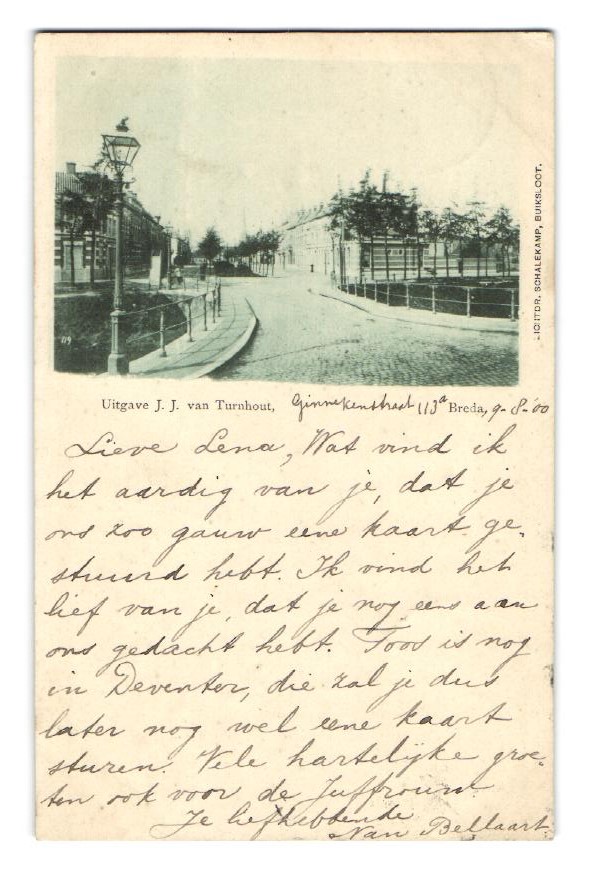 LICHTDR. SCHALEKAMP, BUIKSLOOT.
119
Uitgave J. J. van Turnhout, Ginnekenstraat 113a Breda, 9-8-'00
Lieve Lena, Wat vind ik
het aardig van je, dat je
ons zoo gauw eene kaart ge-
stuurd hebt. Ik vind het
lief van je, dat je nog eens aan
ons gedacht hebt. Toos is nog
in Deventer, die zal je dus
later nog wel eene kaart
sturen. Vele hartelijke groe-
ten ook voor de Juffrouw.
Je liefhebbende
Nan Bellaart.